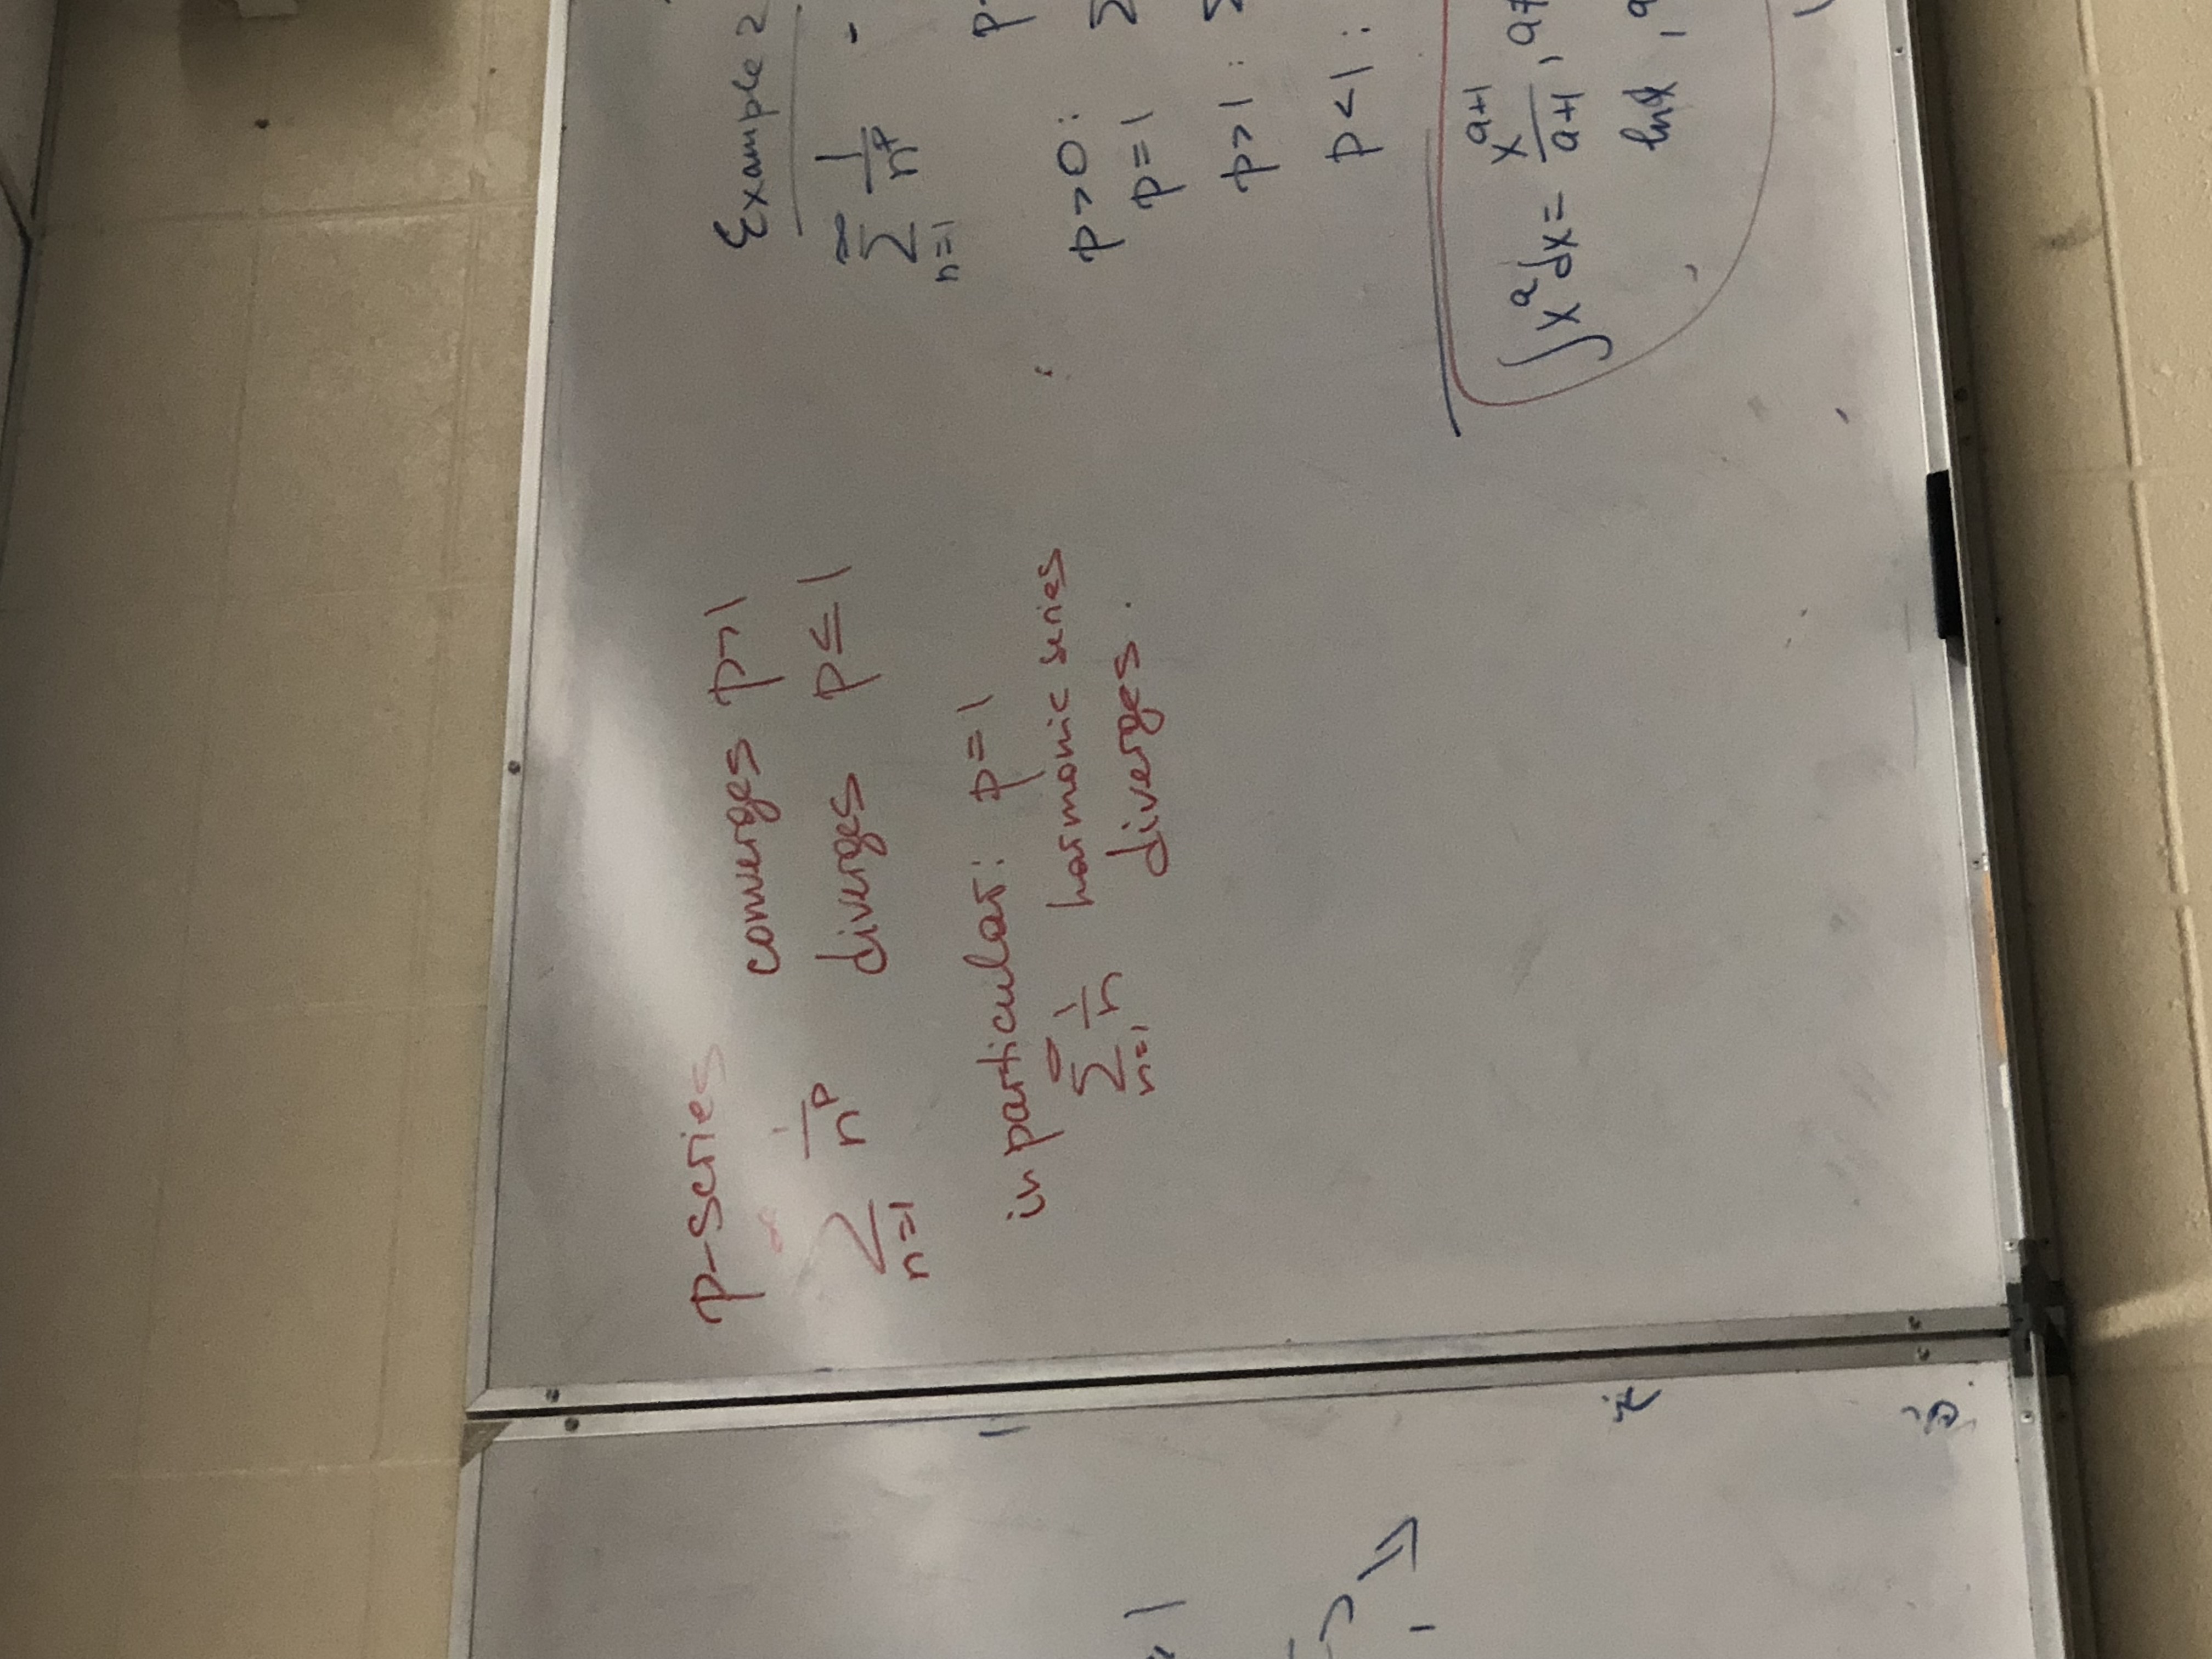 p-series
∞
∑ 1/n^p converges p>1
n=1 diverges p≤1
in particular: p=1
∞
∑ 1/n harmonic series
n=1 diverges.
Example 2
∞
∑ 1/n^p -
n=1
p>0:
p=1 ∑
p>1: ∑
p<1:
∫x^a dx = x^(a+1)/(a+1), a≠
ln x, a